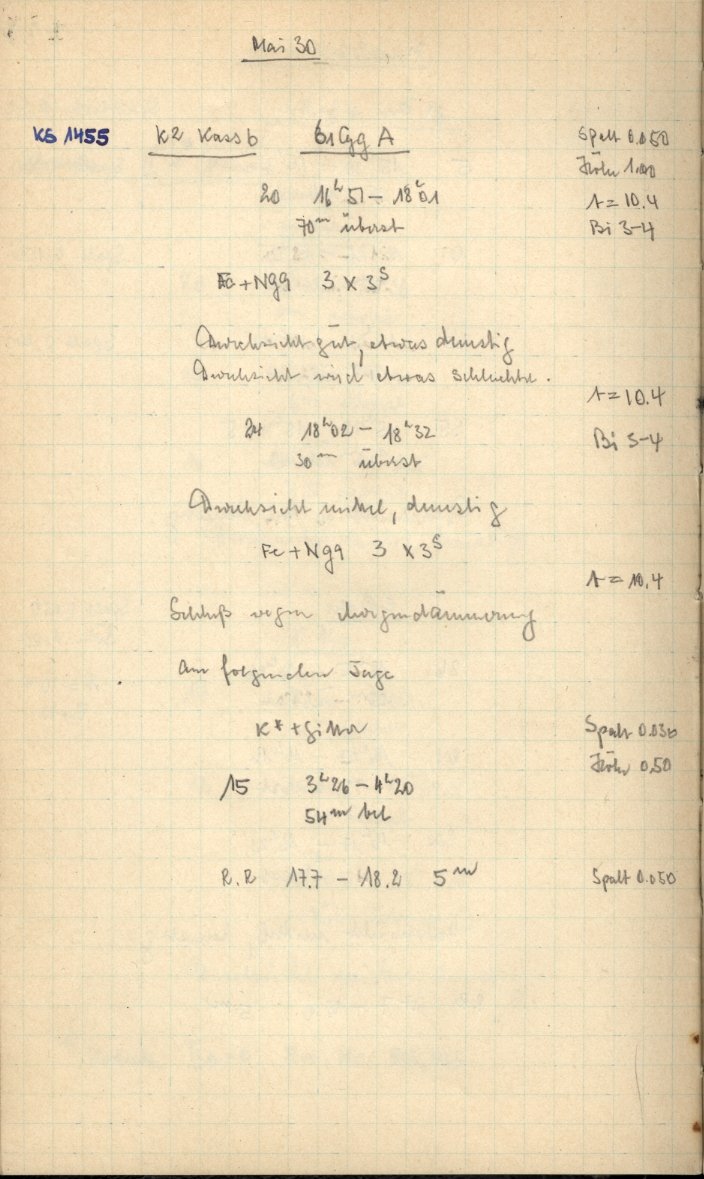 Mai 30
KS 1455 K2 Kass b 61 Cyg A Spalt 0.050
Höhe 1.00
20 16ʰ51 – 18ʰ01 t = 10.4
70ᵐ überst Bi 3-4
Fe + Ng9 3 x 3ˢ
Durchsicht gut, etwas dunstig
Durchsicht wird etwas schlechter.
t = 10.4
24 18ʰ02 – 18ʰ32 Bi 3-4
30ᵐ überst
Durchsicht mittel, dunstig
Fe + Ng9 3 x 3ˢ
t = 10.4
Schluß wegen Morgendämmerung
Am folgenden Tage
K* + Gitter Spalt 0.030
Höhe 0.50
15 3ʰ26 – 4ʰ20
54ᵐ bel
R.R 17.7 – 18.2 5ᵐ Spalt 0.050